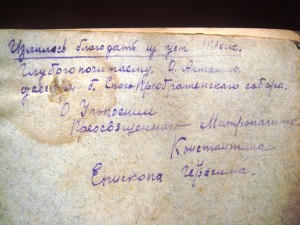 Излилась благодать из уст Твоих.
Глубокопочитаему. О. Антонию
б. Спасо-Преображенского собора.
О Упокоении
Преосвященного Митрополита
Константина
Епископа Герасима.